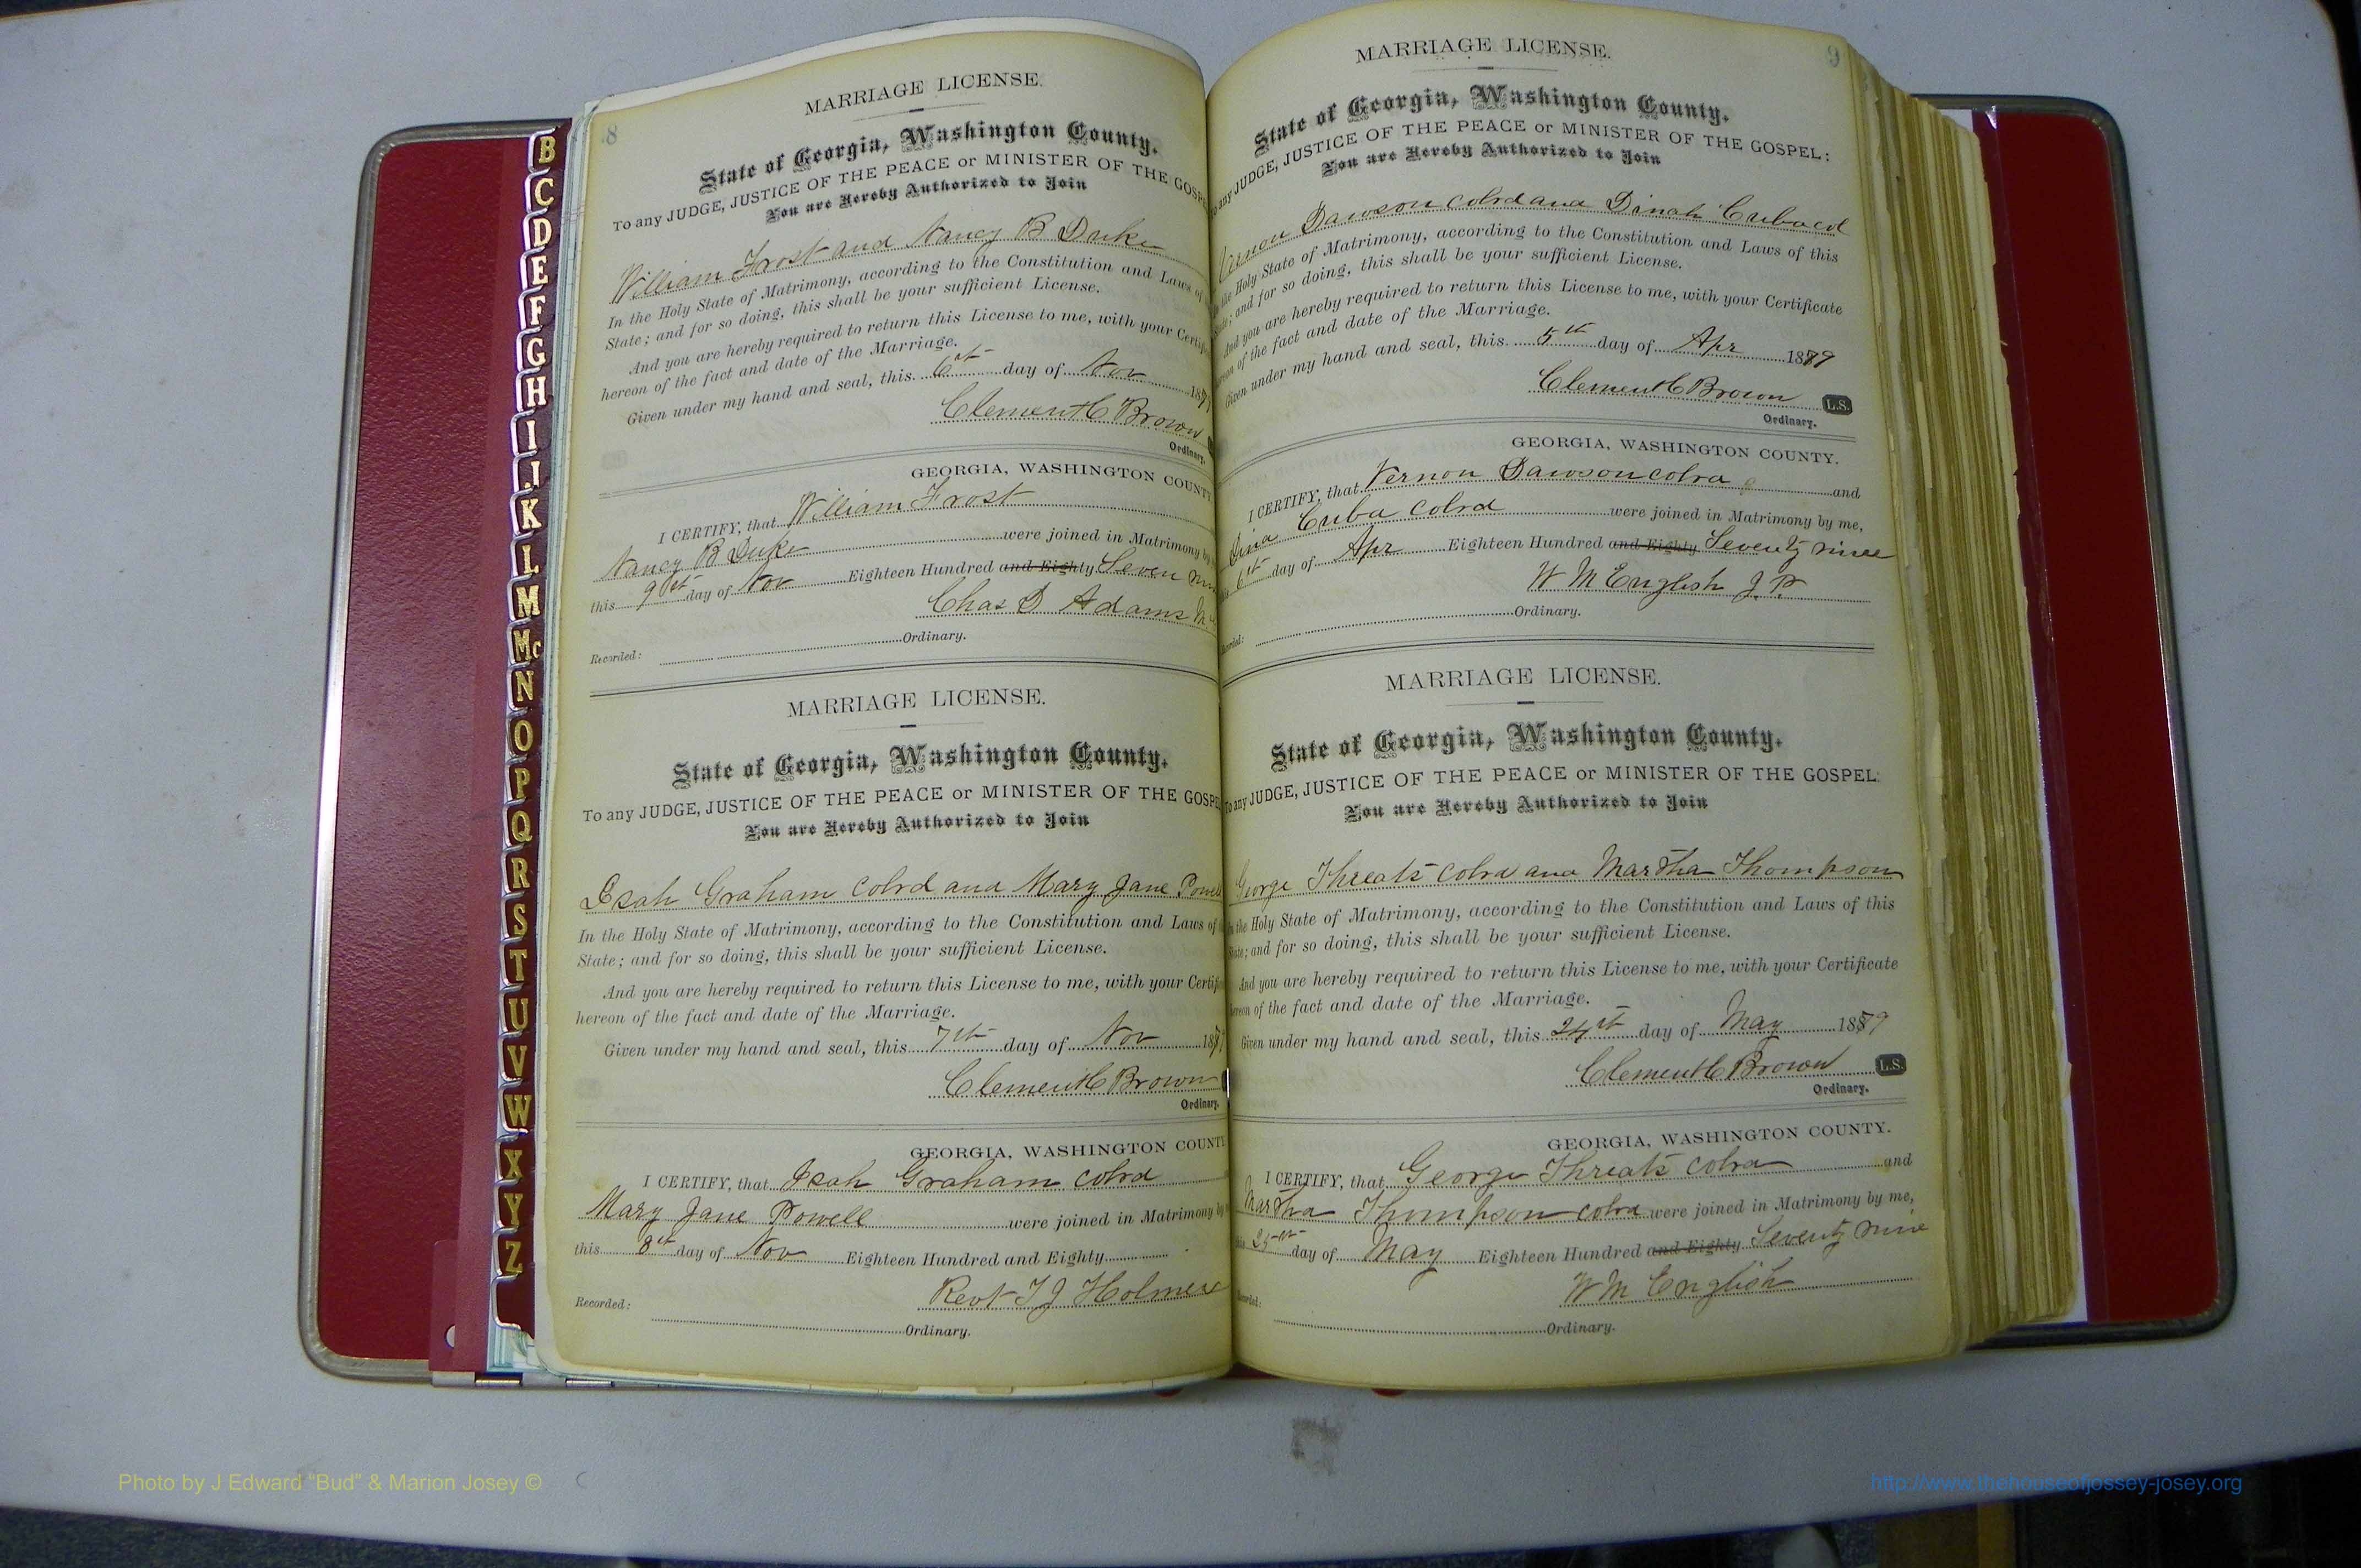 B
C
D
E
F
G
H
I
J
K
L
M
Mc
N
O
P
Q
R
S
T
U
V
W
X
Y
Z
8
MARRIAGE LICENSE.
State of Georgia, Washington County.
To any JUDGE, JUSTICE OF THE PEACE or MINISTER OF THE GOSP
You are Hereby Authorized to Join
William Frost and Nancy B Duke
In the Holy State of Matrimony, according to the Constitution and Laws of
State; and for so doing, this shall be your sufficient License.
And you are hereby required to return this License to me, with your Certif
hereon of the fact and date of the Marriage.
Given under my hand and seal, this 6th day of Nov 187
Clement C Brown
Ordinary.
GEORGIA, WASHINGTON COUNTY
I CERTIFY, that William Frost
Nancy B Duke were joined in Matrimony by
this 9th day of Nov Eighteen Hundred and Eighty Seven
Chas D Adams
Recorded: Ordinary.
MARRIAGE LICENSE.
State of Georgia, Washington County.
To any JUDGE, JUSTICE OF THE PEACE or MINISTER OF THE GOSP
You are Hereby Authorized to Join
Isah Graham Colrd and Mary Jane Powell
In the Holy State of Matrimony, according to the Constitution and Laws of
State; and for so doing, this shall be your sufficient License.
And you are hereby required to return this License to me, with your Certif
hereon of the fact and date of the Marriage.
Given under my hand and seal, this 7th day of Nov 187
Clement C Brown
Ordinary.
GEORGIA, WASHINGTON COUNT
I CERTIFY, that Isah Graham Colrd
Mary Jane Powell were joined in Matrimony by
this 8th day of Nov Eighteen Hundred and Eighty
Revt T J Holmes
Recorded:
Ordinary.
9
MARRIAGE LICENSE.
State of Georgia, Washington County.
To any JUDGE, JUSTICE OF THE PEACE or MINISTER OF THE GOSPEL:
You are Hereby Authorized to Join
Vernon Dawson colrd and Dinah Cuba cd
In the Holy State of Matrimony, according to the Constitution and Laws of this
State; and for so doing, this shall be your sufficient License.
And you are hereby required to return this License to me, with your Certificate
hereon of the fact and date of the Marriage.
Given under my hand and seal, this 5th day of Apr 1879
Clement C Brown L.S.
Ordinary.
GEORGIA, WASHINGTON COUNTY.
I CERTIFY, that Vernon Dawson colrd and
Dina Cuba Colrd were joined in Matrimony by me,
this 6th day of Apr Eighteen Hundred and Eighty Seventy nine
W M English J. P.
Recorded: Ordinary.
MARRIAGE LICENSE.
State of Georgia, Washington County.
To any JUDGE, JUSTICE OF THE PEACE or MINISTER OF THE GOSPEL:
You are Hereby Authorized to Join
George Threats Colrd and Martha Thompson
In the Holy State of Matrimony, according to the Constitution and Laws of this
State; and for so doing, this shall be your sufficient License.
And you are hereby required to return this License to me, with your Certificate
hereon of the fact and date of the Marriage.
Given under my hand and seal, this 24th day of May 1879
Clement C Brown L.S.
Ordinary.
GEORGIA, WASHINGTON COUNTY.
I CERTIFY, that George Threats Colrd and
Martha Thompson colrd were joined in Matrimony by me,
this 25th day of May Eighteen Hundred and Eighty Seventy nine
W M English
Recorded:
Ordinary.
Photo by J Edward "Bud" & Marion Josey ©
http://www.thehouseofjossey-josey.org